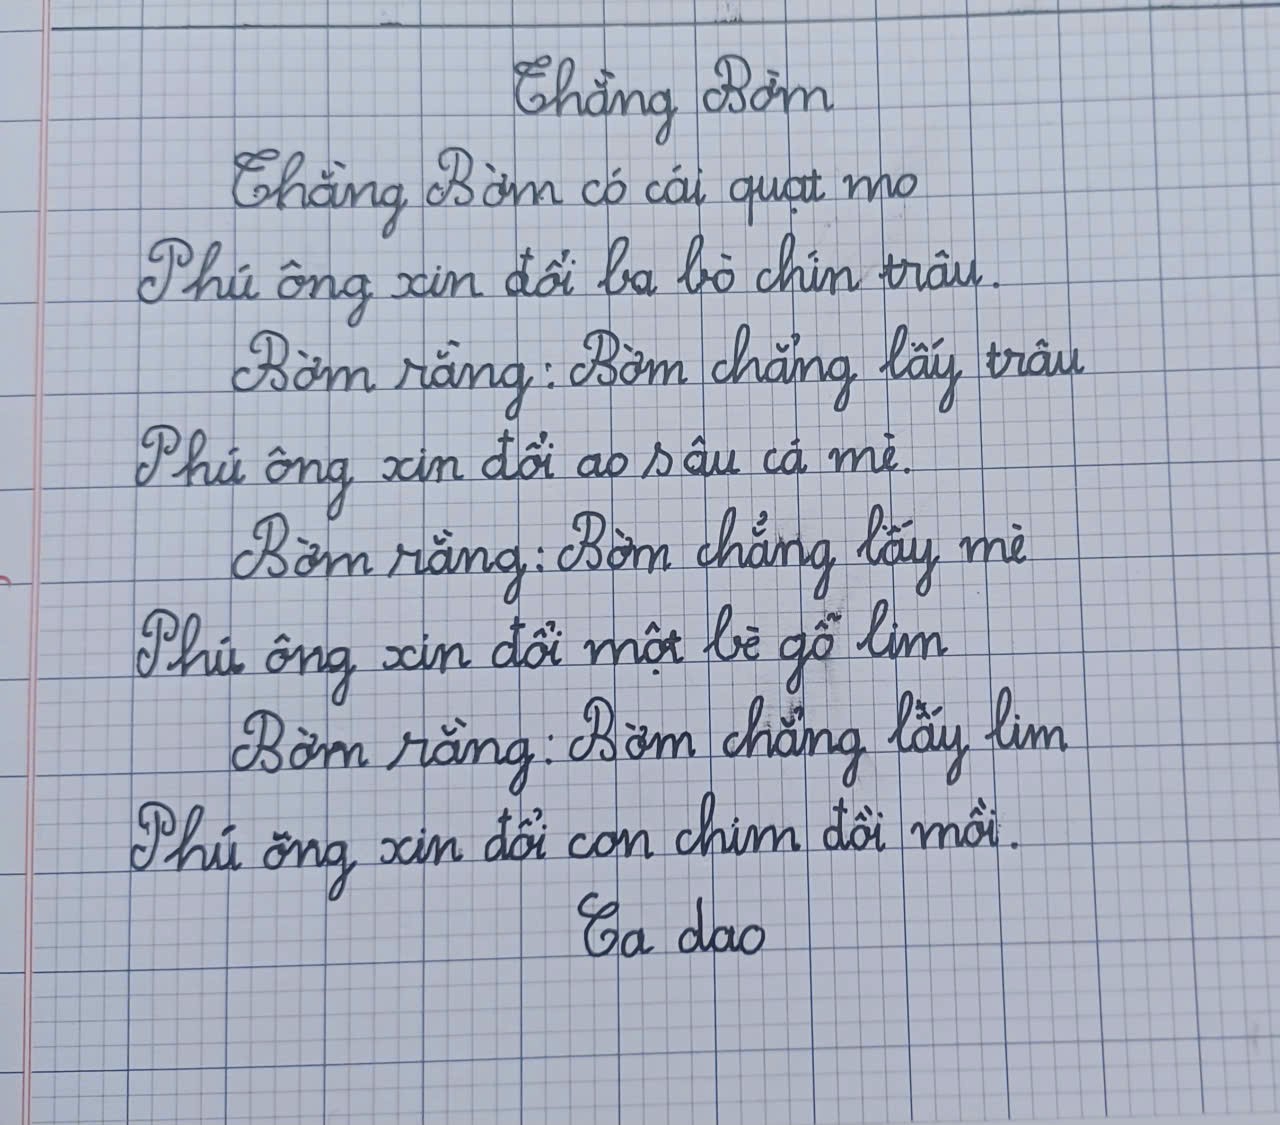 Thằng Bờm
Thằng Bờm có cái quạt mo
Phú ông xin đổi ba bò chín trâu.
Bờm rằng: Bờm chẳng lấy trâu
Phú ông xin đổi ao sâu cá mè.
Bờm rằng: Bờm chẳng lấy mè
Phú ông xin đổi một bè gỗ lim
Bờm rằng: Bờm chẳng lấy lim
Phú ông xin đổi con chim đồi mồi.
Ca dao